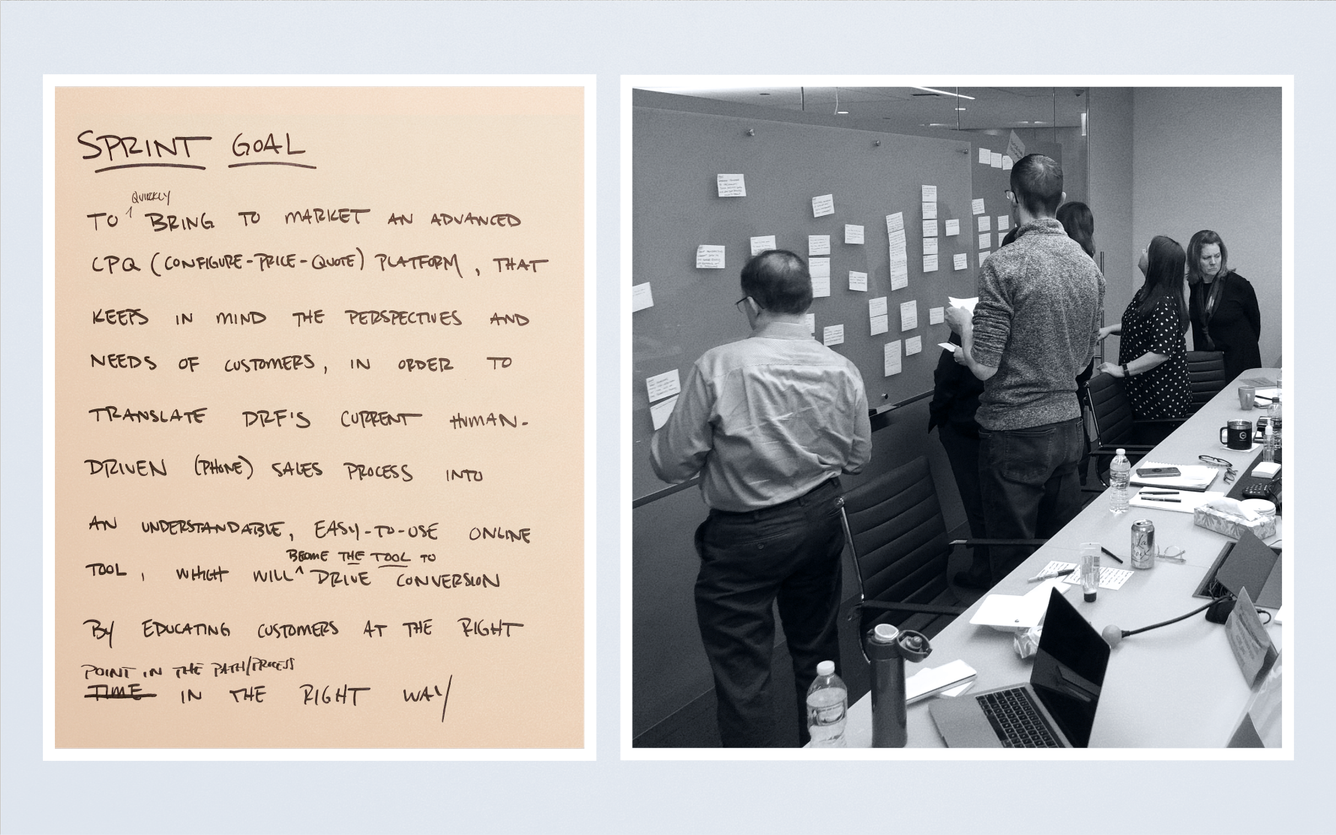 SPRINT GOAL
QUICKLY
TO BRING TO MARKET AN ADVANCED
CPQ (CONFIGURE-PRICE-QUOTE) PLATFORM, THAT
KEEPS IN MIND THE PERSPECTIVES AND
NEEDS OF CUSTOMERS, IN ORDER TO
TRANSLATE DRF'S CURRENT HUMAN-
DRIVEN (PHONE) SALES PROCESS INTO
AN UNDERSTANDABLE, EASY-TO-USE ONLINE
BECOME THE TOOL TO
TOOL, WHICH WILL ^ DRIVE CONVERSION
BY EDUCATING CUSTOMERS AT THE RIGHT
POINT IN THE PATH/PROCESS
TIME IN THE RIGHT WAY